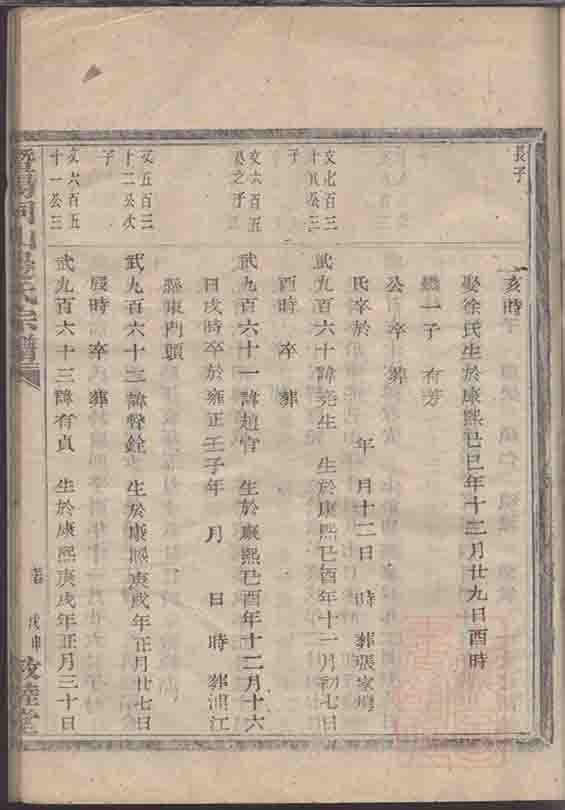 長子
亥時
娶徐氏生於康熙己巳年十二月廿九日酉時
繼一子 有芳
公 卒 葬
氏卒於 年 月十二日 時 葬張家塢
文七百三
十 公三
子
武九百六十諱堯生 生於康熙己酉年十一月初七日
酉時 卒 葬
文六百五
之子
武九百六十一諱趙官 生於康熙己酉年十二月十六
日戌時卒於雍正壬子年 月 日 時 葬浦江
縣東門頭
文五百三
十二公次
子
武九百六十二諱聲銓 生於康熙庚戌年正月廿七日
辰時 卒 葬
文六百五
十一公三
武九百六十三諱有貞 生於康熙庚戌年正月三十日
暨陽同山邊氏宗譜
戊申 敦睦堂